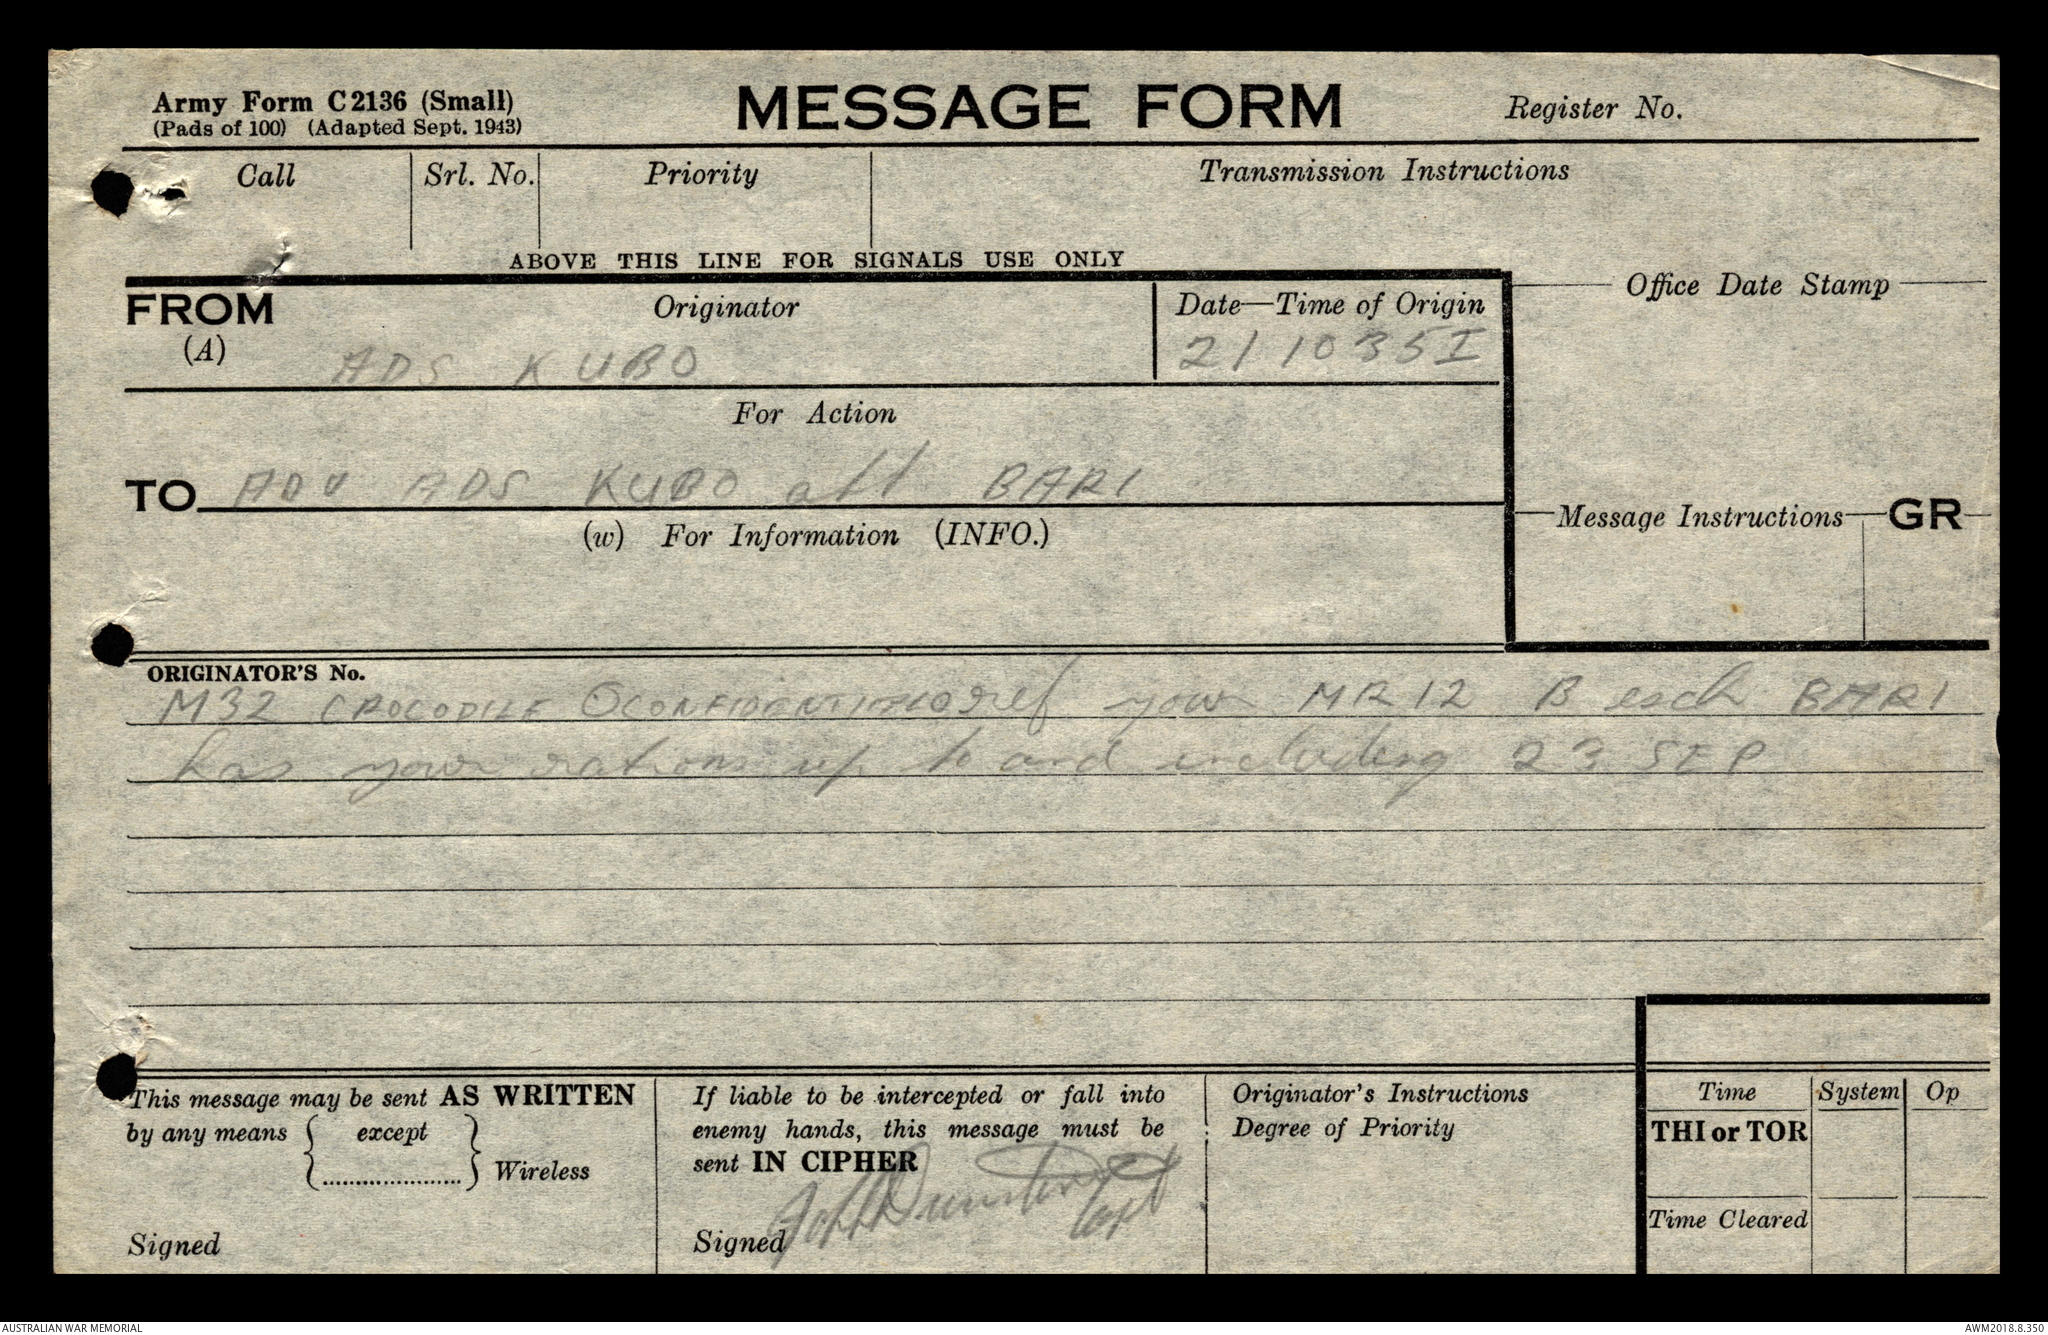 Army Form C2136 (Small)
(Pads of 100) (Adapted Sept. 1943)
MESSAGE FORM
Register No.
Call
Srl. No.
Priority
Transmission Instructions
ABOVE THIS LINE FOR SIGNALS USE ONLY
FROM
(A)
Originator
ADS KUBO
Date—Time of Origin
211035I
Office Date Stamp
For Action
TO ADV ADS KUBO att BARI
(w) For Information (INFO.)
Message Instructions
GR
ORIGINATOR'S No.
M32 CROCODILE CONFIDENTIAL ref your MR12 B ech BARI
has your rations up to and including 23 SEP
This message may be sent AS WRITTEN
by any means { except
..................... } Wireless
Signed
If liable to be intercepted or fall into
enemy hands, this message must be
sent IN CIPHER
Signed Capt
Originator's Instructions
Degree of Priority
Time
System
Op
THI or TOR
Time Cleared
AUSTRALIAN WAR MEMORIAL
AWM2018.8.350